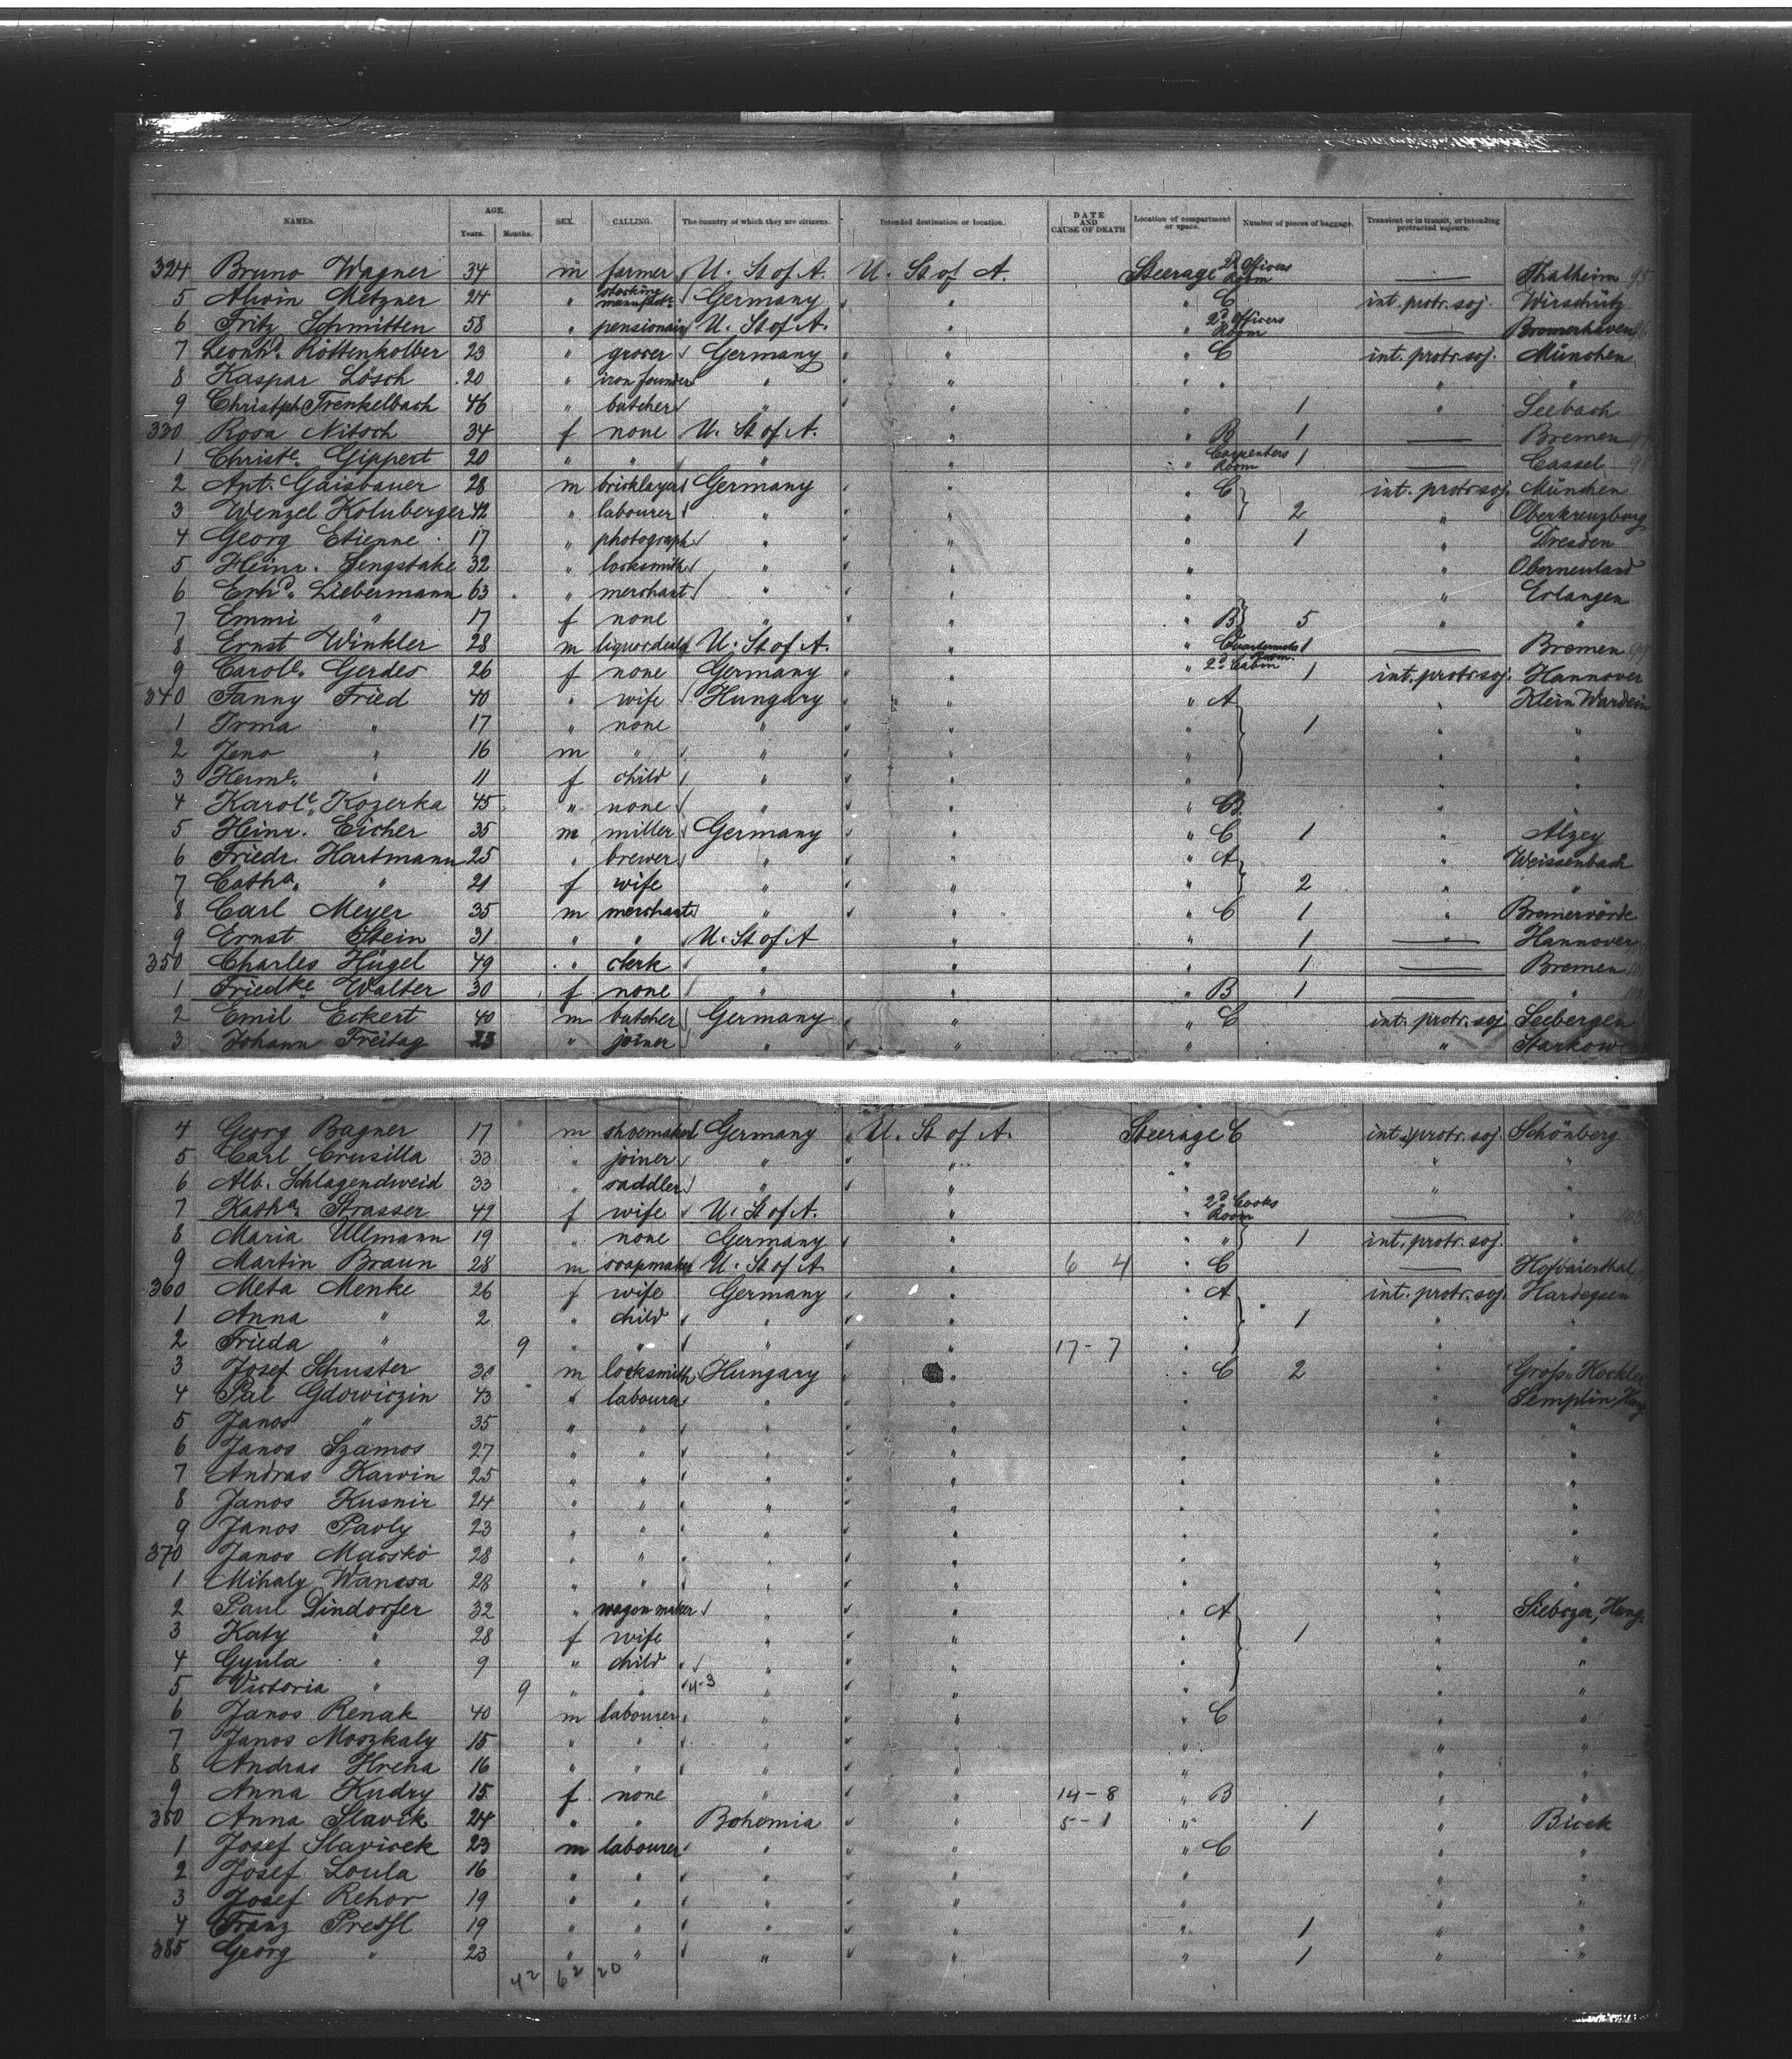 NAMES. AGE. Years. Months. SEX. CALLING. The country of which they are citizens. Intended destination or location. DATE AND CAUSE OF DEATH Location of compartment or space. Number of pieces of baggage. Transient or in transit, or intending protracted sojourn.
324 Bruno Wagner 34 m farmer U. St of A. U. St of A. Steerage 2d Officers Room — Thalheim 95
5 Alwin Metzner 24 " stocking manufact. Germany " " C int. protr. soj. Wirschütz
6 Fritz Schmitten 58 " pensionair U. St of A. " " 2d Officers Room — Bremerhaven 96
7 Leonhd. Röttenkolber 23 " grocer Germany " " C int. protr. soj. München
8 Kaspar Lösch 20 " iron founder " " " " " "
9 Christph Trenkelbach 46 " butcher " " " 1 " Seebach
330 Rosa Nitsch 34 f none U. St of A. " " B 1 — Bremen 97
1 Christe. Gippert 20 " " " " " Carpenters Room 1 — Cassel 98
2 Ant. Gaisbauer 28 m bricklayer Germany " " C int. protr. soj. München
3 Wenzel Koluberger 42 " labourer " " " 2 " Oberkreuzburg
4 Georg Etienne 17 " photograph " " " 1 " Dresden
5 Heinr. Sengstake 32 " locksmith " " " " Oberneuland
6 Erhd. Liebermann 63 " merchant " " " " Erlangen
7 Emmi " 17 f none " " " B 5 " "
8 Ernst Winkler 28 m liquordealer U. St of A. " " Quarterm. Room 1 — Bremen 99
9 Carole. Gerdes 26 f none Germany " " 2d Cabin 1 int. protr. soj. Hannover
340 Fanny Fried 40 " wife Hungary " " A " Klein Wardein
1 Irma " 17 " none " " " 1 " "
2 Jeno " 16 m " " " " " "
3 Herme. " 11 f child " " " " "
4 Karole. Kozerka 45 " none " " " B " "
5 Heinr. Eicher 35 m miller Germany " " C 1 " Alzey
6 Friedr. Hartmann 25 " brewer " " " A " Weissenbach
7 Catha. " 21 f wife " " " 2 " "
8 Carl Meyer 35 m merchant " " " C 1 " Bremervörde
9 Ernst Stein 31 " " U. St of A " " 1 — Hannover
350 Charles Hügel 49 " clerk " " " 1 — Bremen
1 Friedke. Walter 30 f none " " " B 1 — "
2 Emil Eckert 40 m butcher Germany " " C int. protr. soj Seebergen
3 Johann Freitag 23 " joiner " " " " Starkow
4 Georg Bagner 17 m shoemaker Germany U. St of A. Steerage C int. protr. soj. Schönberg
5 Carl Crusilla 33 " joiner " " " " "
6 Alb. Schlagendweid 33 " saddler " " " " "
7 Katha. Strasser 42 f wife U. St of A. " 2d Cooks Room — "
8 Maria Ullmann 19 " none Germany " " " 1 int. protr. soj. "
9 Martin Braun 28 m soapmaker U. St of A. " 6 4 " C — Hofvaierthal
360 Meta Menke 26 f wife Germany " " A int. protr. soj. Hardegsen
1 Anna " 2 " child " " " 1 " "
2 Frieda " 9 " " " " 17-7 " " "
3 Josef Schuster 30 m locksmith Hungary " " C 2 " Gross Kockler
4 Pal Gdowiczin 43 " labourer " " " " Semplin, Hung.
5 Janos " 35 " " " " " " "
6 Janos Szamos 27 " " " " " " "
7 Andras Karvin 25 " " " " " " "
8 Janos Kusnir 24 " " " " " " "
9 Janos Pavly 23 " " " " " " "
370 Janos Macsko 28 " " " " " " "
1 Mihaly Wancsa 28 " " " " " " "
2 Paul Dindorfer 32 " wagon maker " " " A " Siebozer, Hung.
3 Katy " 28 f wife " " " 1 " "
4 Gyula " 9 " child " " " " "
5 Victoria " 9 " " 4-3 " " " " "
6 Janos Renak 40 m labourer " " " C " "
7 Janos Moszkaly 15 " " " " " " "
8 Andras Hreha 16 " " " " " " "
9 Anna Kudry 15 f none " " 14-8 " B " "
380 Anna Slavik 24 " " Bohemia " 5-1 " 1 " Bicek
1 Josef Slavicek 23 m labourer " " " C " "
2 Josef Loula 16 " " " " " " "
3 Josef Rehor 19 " " " " " " "
4 Franz Pressl 19 " " " " " 1 " "
385 Georg " 23 " " " " " 1 " "
42 62 20